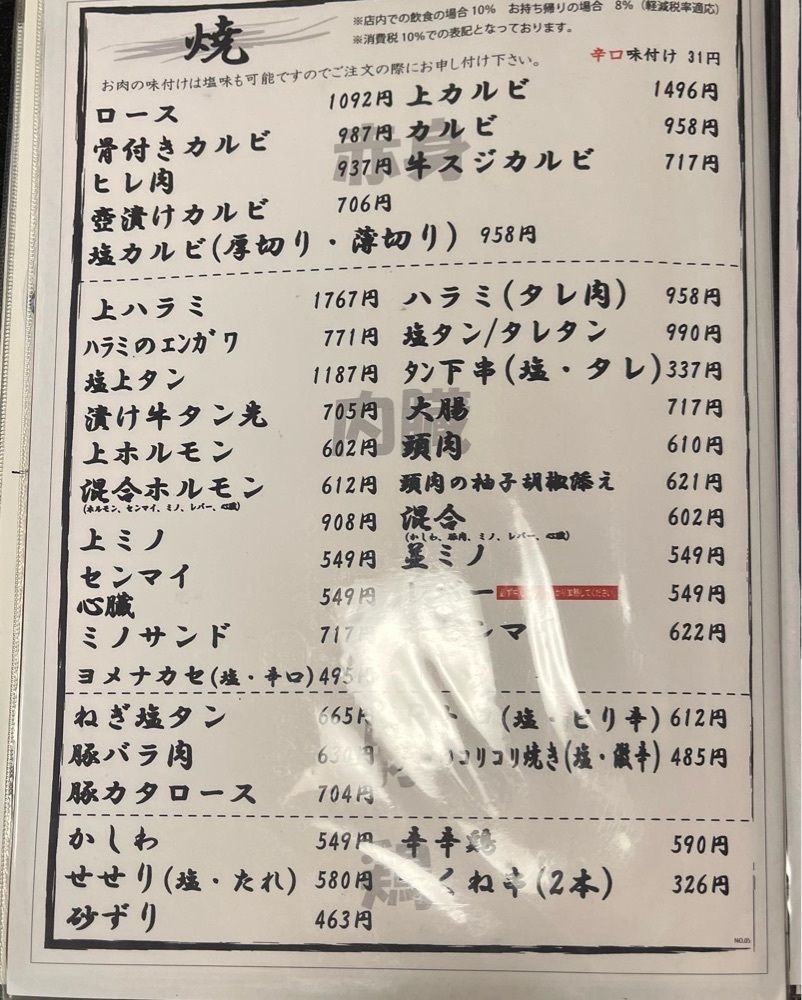 焼
※店内での飲食の場合10%　お持ち帰りの場合　8%（軽減税率適応）
※消費税10%での表記となっております。
お肉の味付けは塩味も可能ですのでご注文の際にお申し付け下さい。
辛口味付け 31円
赤身
ロース 1092円 上カルビ 1496円
骨付きカルビ 987円 カルビ 958円
ヒレ肉 937円 牛スジカルビ 717円
壺漬けカルビ 706円
塩カルビ(厚切り・薄切り) 958円
内臓
上ハラミ 1767円 ハラミ(タレ肉) 958円
ハラミのエンガワ 771円 塩タン/タレタン 990円
塩上タン 1187円 タン下串(塩・タレ) 337円
漬け牛タン先 705円 大腸 717円
上ホルモン 602円 頭肉 610円
混合ホルモン 612円 頭肉の柚子胡椒添え 621円
(ホルモン、センマイ、ミノ、レバー、心臓)
上ミノ 908円 混合 602円
(かしわ、豚肉、ミノ、レバー、心臓)
センマイ 549円 並ミノ 549円
心臓 549円 ー 549円
ミノサンド 717円 ンマ 622円
ヨメナカセ(塩・辛口) 495
ねぎ塩タン 665円 (塩・ピリ辛) 612円
豚バラ肉 コリコリ焼き(塩・微辛) 485円
豚カタロース 704円
鶏
かしわ 549円 辛辛鶏 590円
せせり(塩・たれ) 580円 くね串(2本) 326円
砂ずり 463円
NO.05